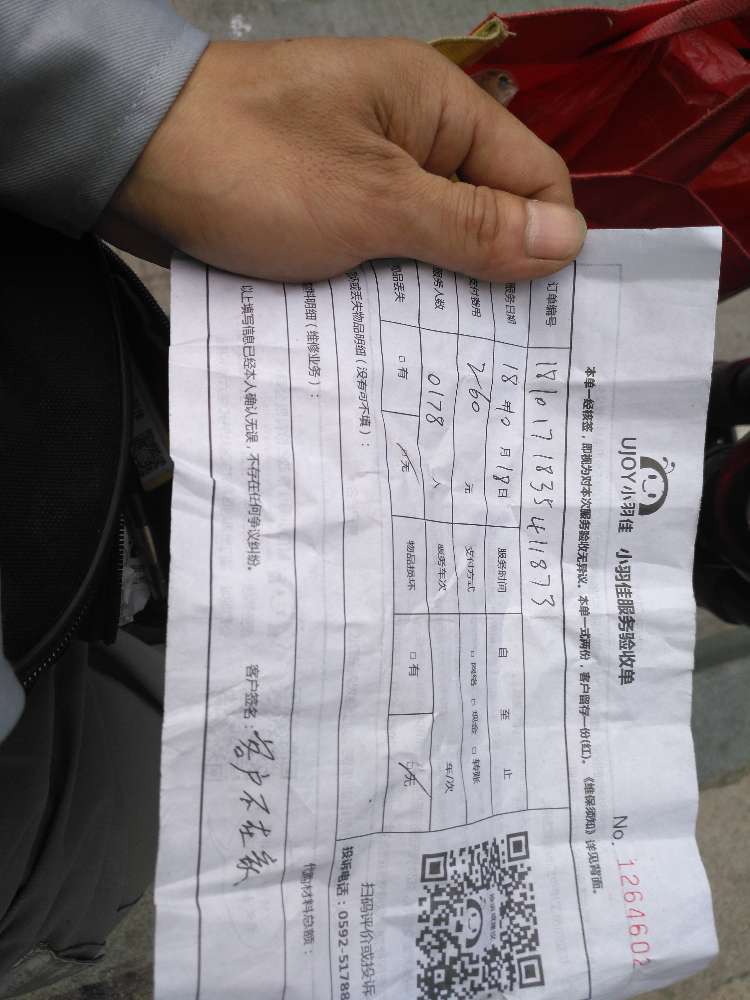 UJOY小羽佳 小羽佳服务验收单
No. 1264602
本单一经核签，即视为对本次服务验收无异议。本单一式两份，客户留存一份(红)。《维保须知》详见背面。
订单编号 1810171835411873
服务日期 18年10月18日 服务时间 自 至 止
费用 260 元 支付方式 □网络 □现金 □转账
服务人数 0178 人 服务车次 车/次
物品丢失 □有 □无 物品损坏 □有 □无
或丢失物品明细（没有可不填）：
材料明细（维修业务）：
代购材料总额：
以上填写信息已经本人确认无误，不存在任何争议纠纷。
客户签名：客户不在家
扫码评价或投诉
投诉电话：0592-51788